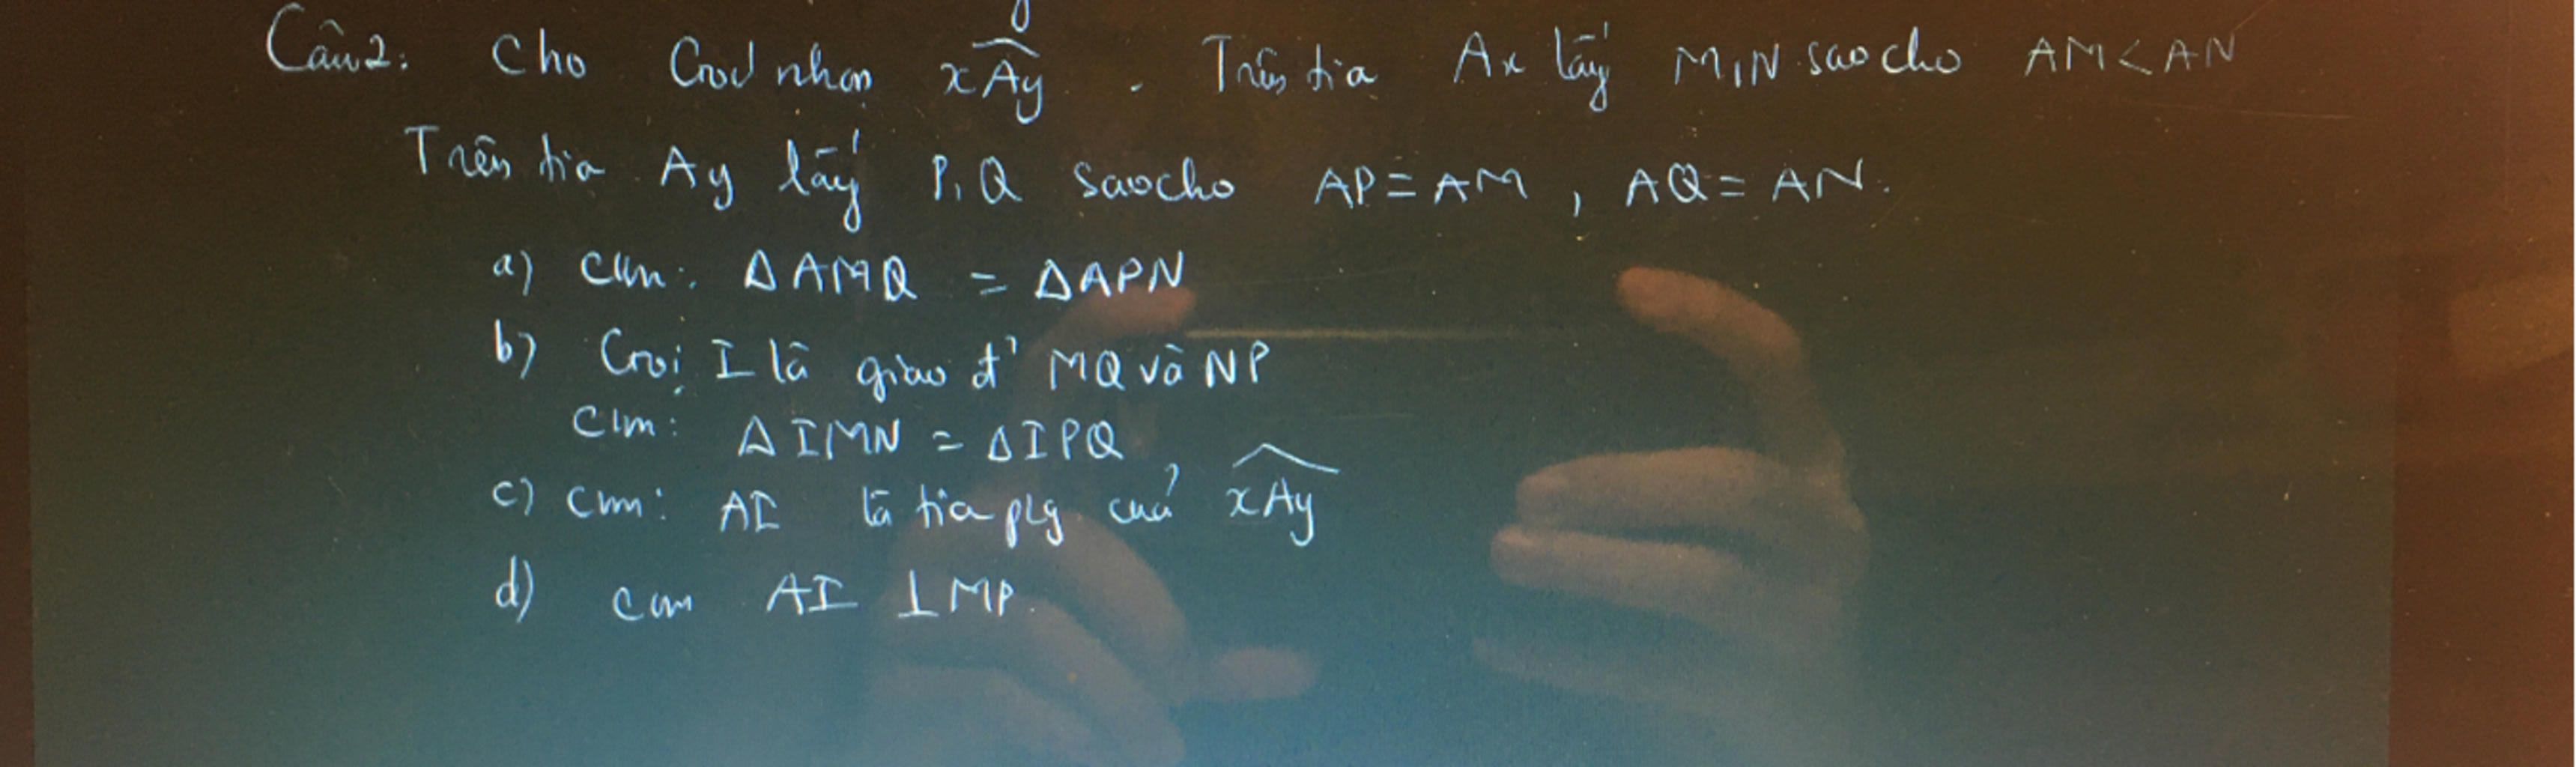 Câu 2: Cho Góc nhọn xAy . Trên tia Ax lấy M, N sao cho AM < AN
Trên tia Ay lấy P, Q sao cho AP = AM , AQ = AN.
a) CM: ΔAMQ = ΔAPN
b) Gọi I là giao đ' MQ và NP
CM: ΔIMN = ΔIPQ
c) CM: AI là tia p/g của xAy
d) CM AI ⊥ MP.